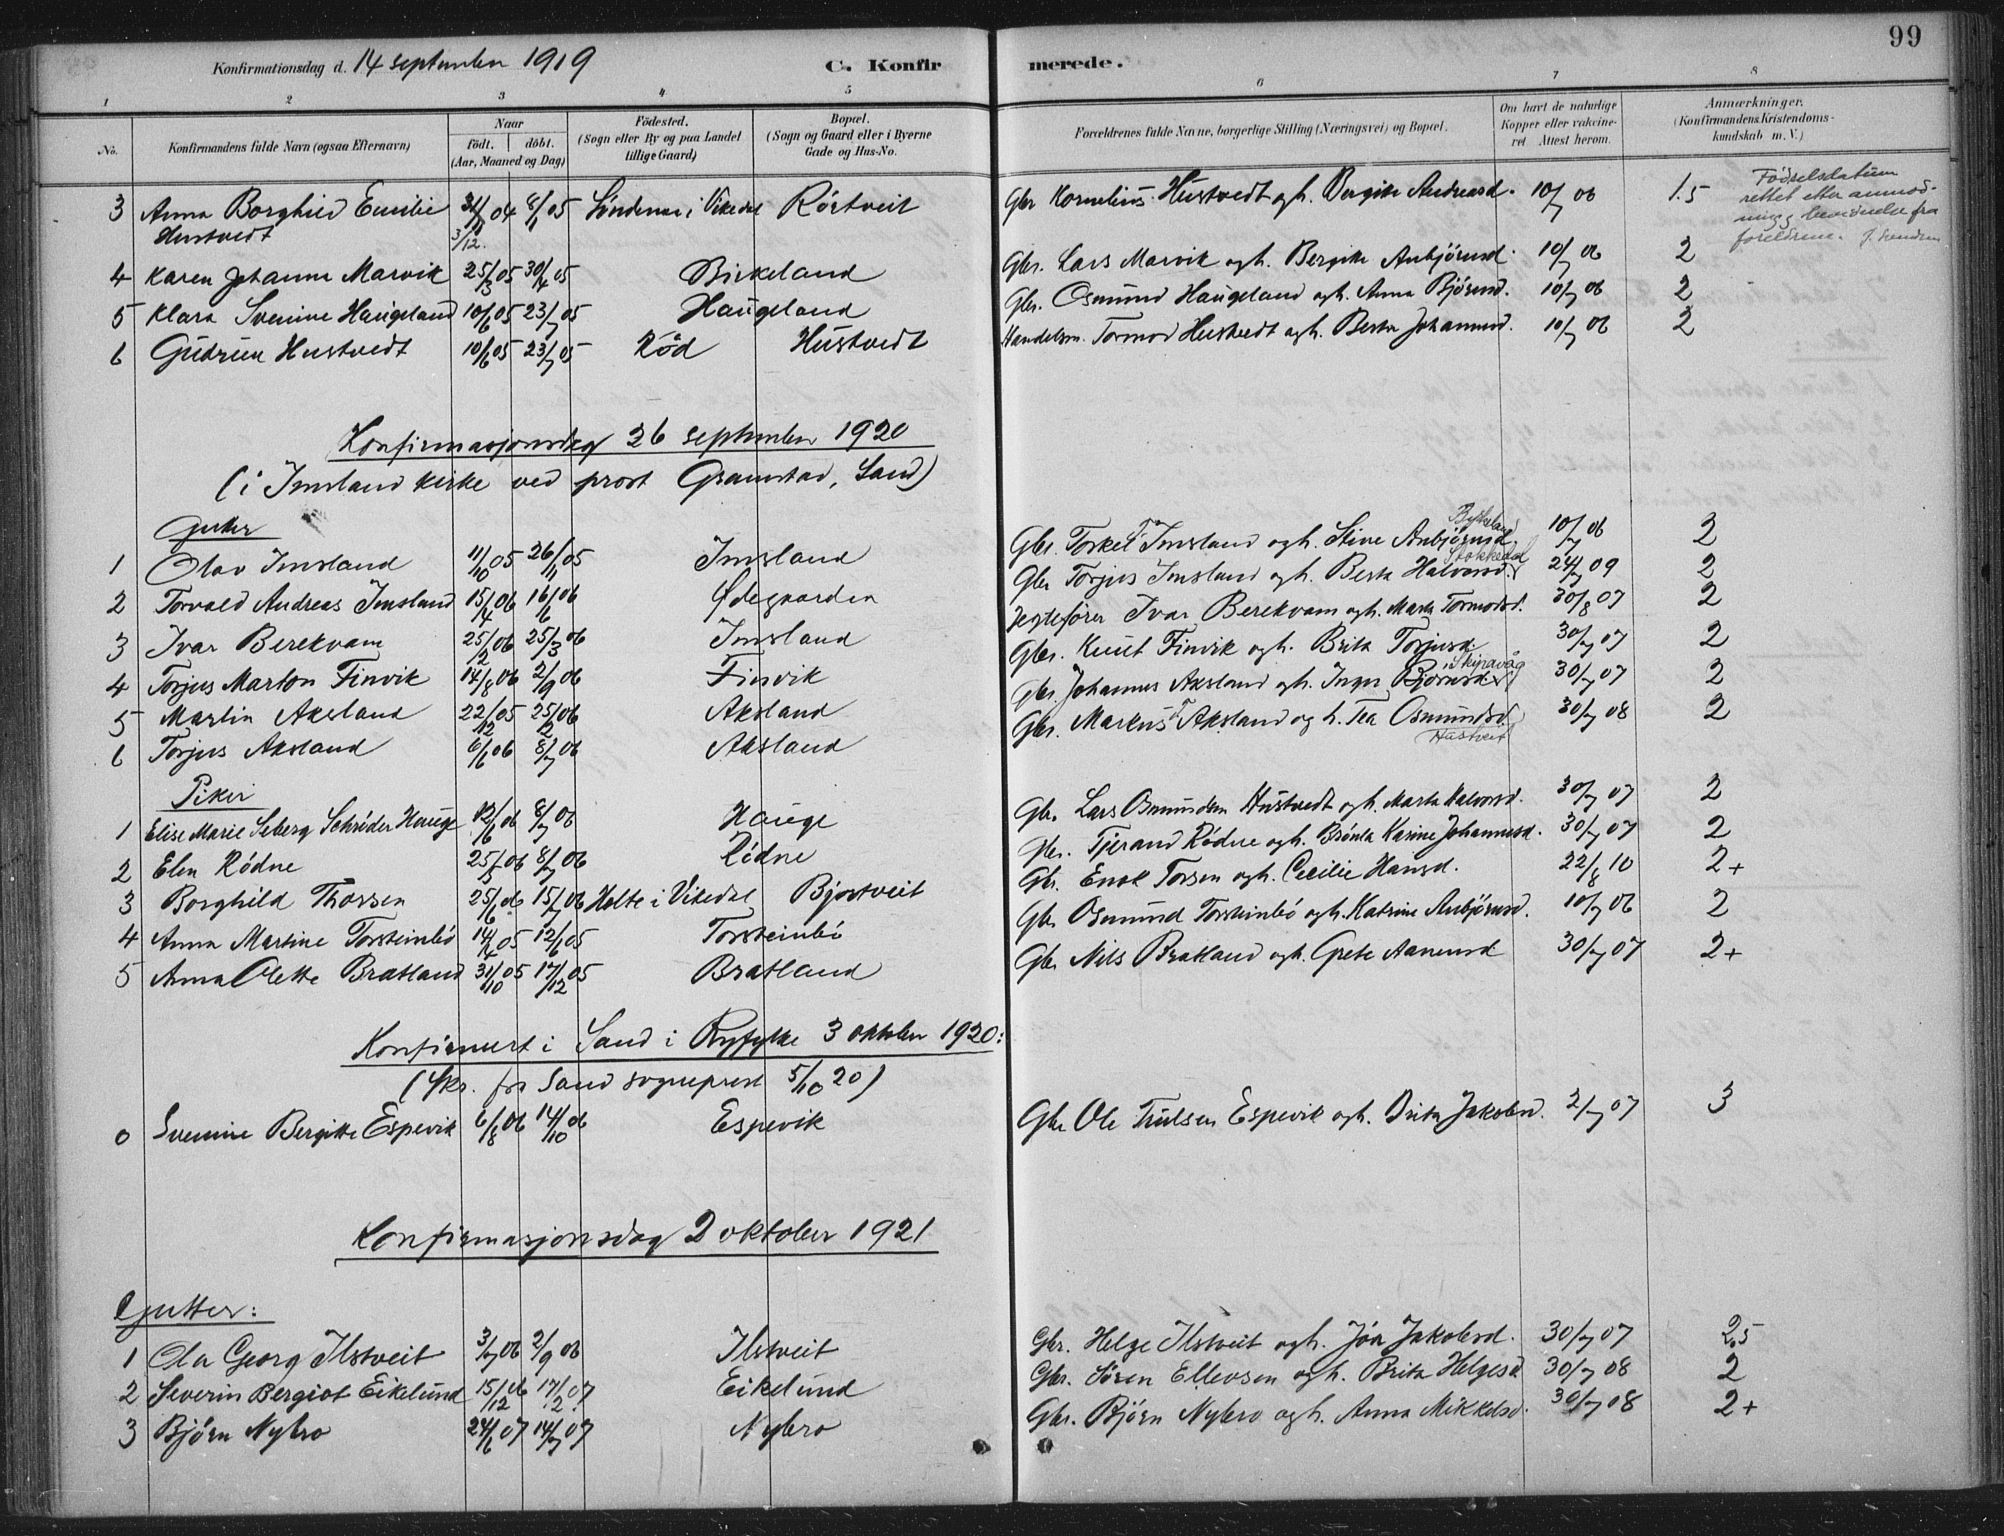 99
Konfirmationsdag d. 14 september 1919 C. Konfirmerede.
1 2 3 4 5 6 7 8
No. Konfirmandens fulde Navn (ogsaa Efternavn) Naar födt. döbt. (Aar, Maaned og Dag) Födested. (Sogn eller By og paa Landet tillige Gaard) Bopæl. (Sogn og Gaard eller i Byerne Gade og Hus-No. Forældrenes fulde Navne, borgerlige Stilling (Næringsvei) og Bopæl. Om havt de naturlige Kopper eller vaccineret Attest herom. Anmærkninger. (Konfirmandens Kristendomskundskab m. V.)
3 Anna Borghild Emilie Hustvedt 31/12 04 8/1 05 Söndenaa i Vikedal Röstveit Gbr Kornelius Hustvedt og h. Bergitte Andreasd. 10/7 06 1.5 Födselsdatum rettet etter anmodning og bevidnelse fra foreldrene.
3/12.
4 Karen Johanne Marvik 25/3 05 30/4 05 Birkeland Gbr. Lars Marvik og h. Bergitte Anbjörnsd. 10/7 06 2
5 Klara Svenine Haugeland 10/6 05 23/7 05 Haugeland Gbr. Osmund Haugeland og h. Anna Björnsd. 10/7 06 2
6 Gudrun Hustvedt 10/6 05 23/7 05 Röd Hustvedt Handelsm. Tormod Hustvedt og h. Berta Johannesd. 10/7 06 2
Konfirmasjonsdag 26 september 1920
(i Imsland kirke ved prost Gramstad, Sand)
Gutter
1 Olav Imsland 11/10 05 26/11 05 Imsland Gbr. Torkel T Imsland og h. Stine Anbjörnsd. 10/7 06 2
2 Torvald Andreas Imsland 15/4 06 16/6 06 Ødegaarden Gbr Torjus Imsland og h. Berta Halvorsd. Stokkedal 24/7 09 2
3 Ivar Berekvam 25/12 06 25/3 06 Imsland Jegtefører Ivar Berekvam og h. Marta Tormodsd. 30/8 07 2
4 Torjus Marton Finvik 14/8 06 2/9 06 Finvik Gbr. Knut Finvik og h. Brita Torjusd 30/7 07 2
5 Martin Aksland 22/12 05 25/2 06 Aksland Gbr Johannes Aksland og h. Inger Björnsd. Skipavåg 30/7 07 2
6 Torjus Aksland 6/6 06 8/7 06 Aksland Gbr. Markus T Aksland og h. Tea Osmundsd. Hustveit 30/7 08 2
Piker
1 Elise Marie Seberg Schröder Hauge 12/6 06 8/7 06 Hauge Gbr. Lars Osmundsen Hustvedt og h. Marta Halvorsd. 30/7 07 2
2 Elen Rödne 25/5 06 8/7 06 Rödne Gbr. Tjerand Rödne og h. Brönla Karine Johannesd. 30/7 07 2
3 Borghild Thorsen 25/6 06 15/7 06 Holte i Vikedal Bjortveit Gbr. Enok Torsen og h. Cecilie Hansd. 22/8 10 2+
4 Anna Martine Torsteinbö 14/4 05 12/6 05 Torsteinbö Gbr Osmund Torsteinbö og h. Katrine Anbjörnsd. 10/7 06 2
5 Anna Olette Bratland 31/10 05 17/12 05 Bratland Gbr Nils Bratland og h. Grete Aanensd 30/7 07 2+
Konfirmert i Sand i Ryfylke 3 oktober 1920:
(Skr. fra Sand sogneprest 5/10 20)
0 Svenine Bergitte Espevik 6/8 06 14/10 06 Espevik Gbr Ole Trulsen Espevik og h. Brita Jakobsd. 2/7 07 3
Konfirmasjonsdag 2 oktober 1921
Gutter:
1 Ola Georg Ilstveit 3/7 06 2/9 06 Ilstveit Gbr. Helge Ilstveit og h. Jöa Jakobsd. 30/7 07 2.5
2 Severin Bergiot Eikelund 15/12 06 17/2 07 Eikelund Gbr. Sören Ellevsen og h. Brita Helgesd 30/7 08 2
3 Björn Nybro 24/6 07 14/7 07 Nybro Gbr. Björn Nybro og h. Anna Mikkelsd. 30/7 08 2+